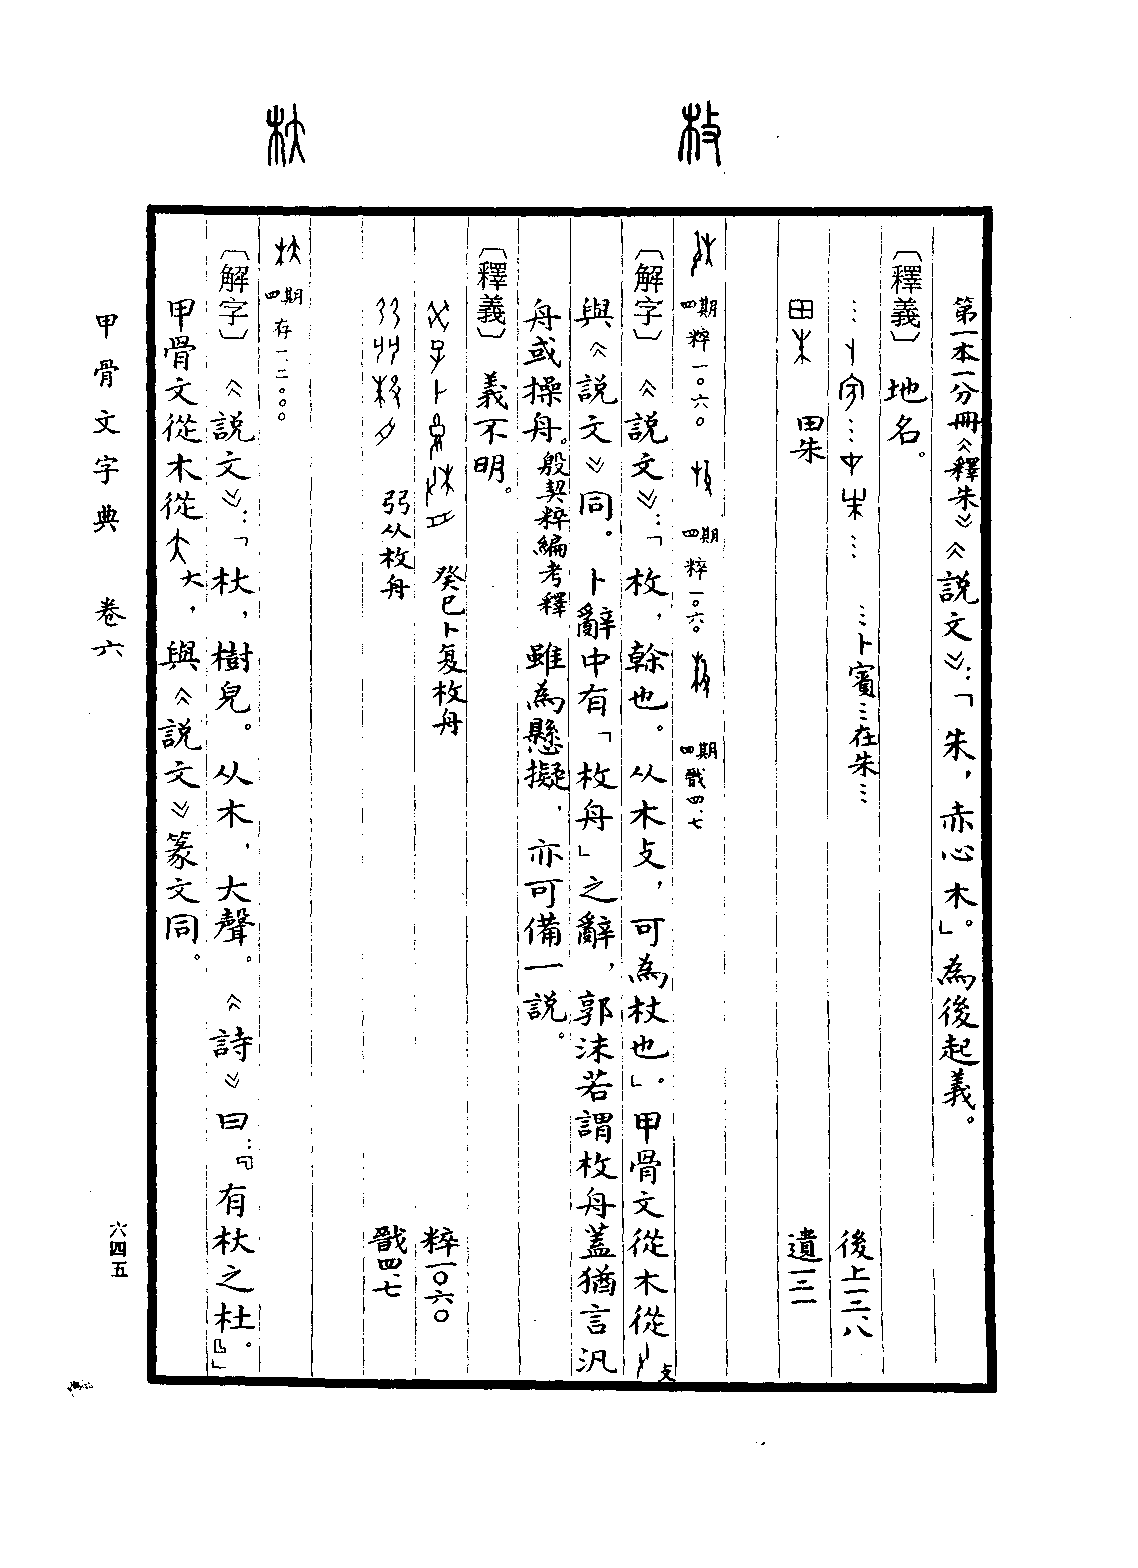 枚
杕
第一本一分冊《釋朱》《說文》：「朱，赤心木」。為後起義。
〔釋義〕地名。
…卜…中…　…卜賓…在朱…　後上一二、八
田朱　田朱　遺一二一
四期 粹一〇六〇　四期 粹一〇六〇　四期 戩四、七
〔解字〕《說文》：「枚，榦也。从木攴，可為杖也」。甲骨文從木從攴
與《說文》同。卜辭中有「枚舟」之辭，郭沫若謂枚舟蓋猶言汎
舟或操舟。殷契粹編考釋 雖為懸擬，亦可備一說。
〔釋義〕義不明。
癸巳卜复枚舟　粹一〇六〇
弜从枚舟　戩四、七
四期 存一、二〇〇〇
〔解字〕《說文》：「杕，樹皃。从木，大聲。《詩》曰：『有杕之杜。』」
甲骨文從木從大，與《說文》篆文同。
甲骨文字典　卷六
六四五